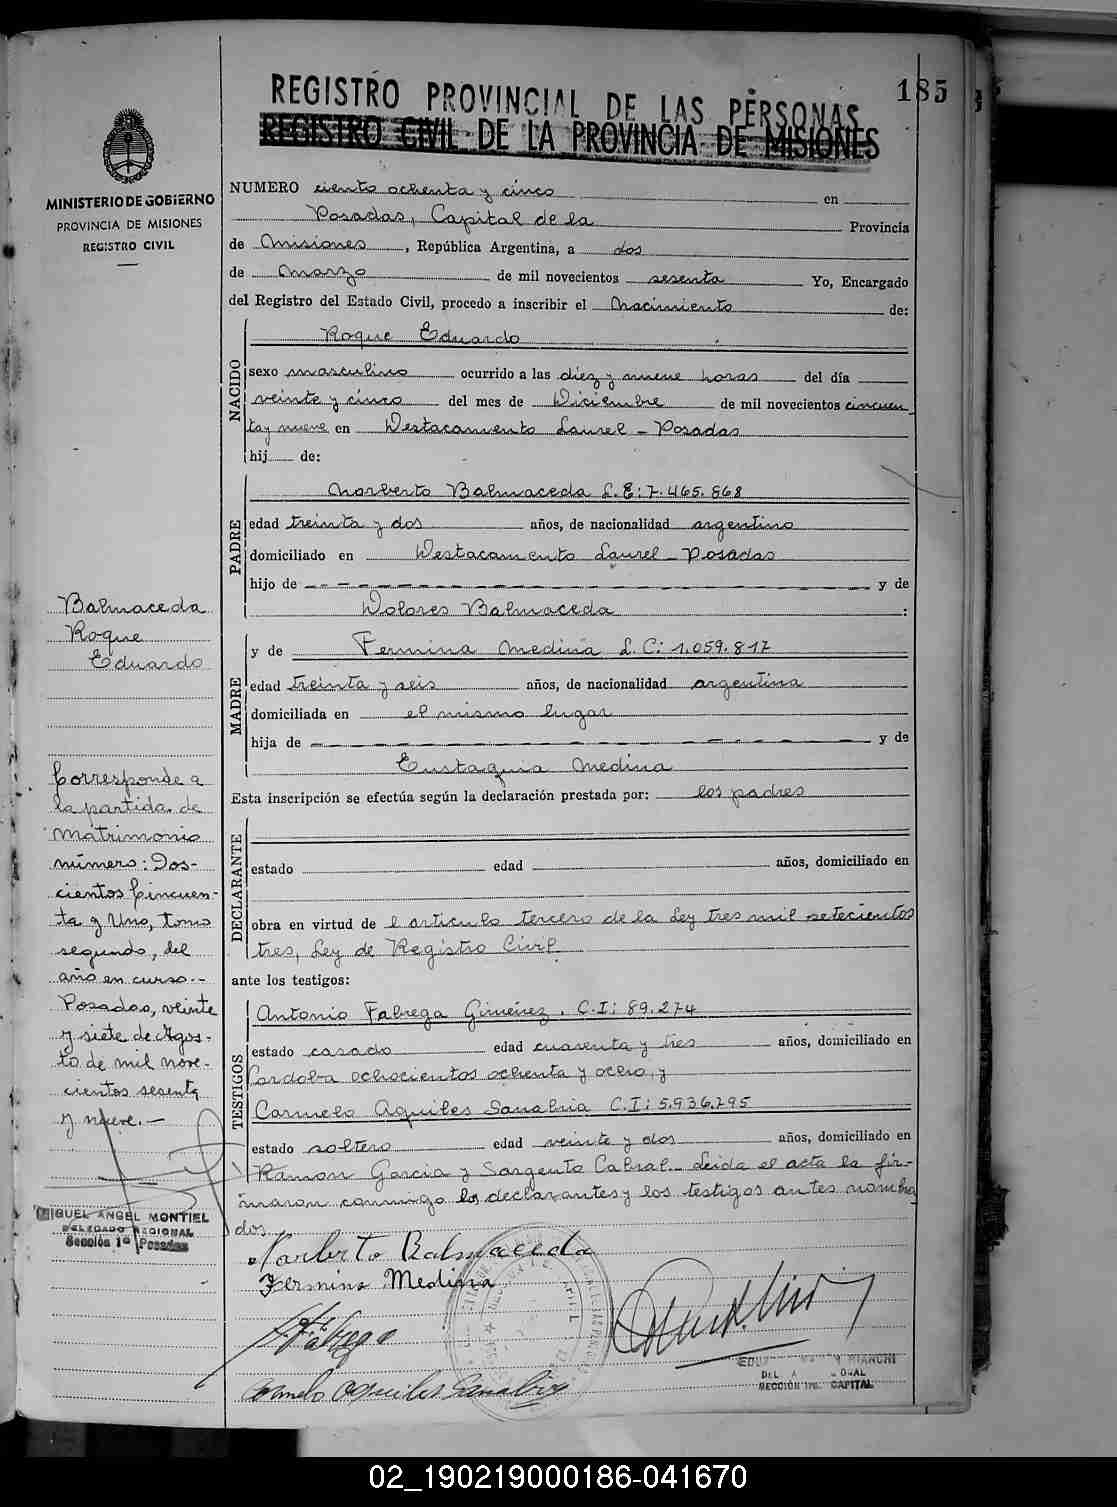 185
REGISTRO PROVINCIAL DE LAS PERSONAS
REGISTRO CIVIL DE LA PROVINCIA DE MISIONES
MINISTERIO DE GOBIERNO
PROVINCIA DE MISIONES
REGISTRO CIVIL
NUMERO ciento ochenta y cinco en
Posadas, Capital de la Provincia
de Misiones, República Argentina, a dos
de Marzo de mil novecientos sesenta Yo, Encargado
del Registro del Estado Civil, procedo a inscribir el Nacimiento de:
NACIDO
Roque Eduardo
sexo masculino ocurrido a las diez y nueve horas del día
veinte y cinco del mes de Diciembre de mil novecientos cincuen
ta y nueve en Destacamento Laurel - Posadas
hij de:
PADRE
Norberto Balmaceda L.E: 7.465.868
edad treinta y dos años, de nacionalidad argentino
domiciliado en Destacamento Laurel - Posadas
hijo de y de
Dolores Balmaceda :
MADRE
y de Fermina Medina L.C: 1.059.817
edad treinta y seis años, de nacionalidad argentina
domiciliada en el mismo lugar
hija de y de
Eustaquia Medina
Esta inscripción se efectúa según la declaración prestada por: los padres
DECLARANTE
estado edad años, domiciliado en
obra en virtud de l articulo tercero de la Ley tres mil setecientos
tres, Ley de Registro Civil
ante los testigos:
TESTIGOS
Antonio Fabrega Giménez. C.I: 89.274
estado casado edad cuarenta y tres años, domiciliado en
Cordoba ochocientos ochenta y ocho, y
Carmelo Aquiles Sanabria C.I: 5.936.795
estado soltero edad veinte y dos años, domiciliado en
Ramon Garcia y Sargento Cabral. Leida el acta la fir-
maron conmigo los declarantes y los testigos antes nombra
dos
Norberto Balmaceda
Fermina Medina
Fabrega
Carmelo Aquiles Sanabria
BIANCHI
SECCION 1ra. CAPITAL
Balmaceda
Roque
Eduardo
Corresponde a
la partida de
matrimonio
número: Dos-
cientos Cincuen-
ta y Uno, tomo
segundo, del
año en curso.-
Posadas, veinte
y siete de Agos-
to de mil nove-
cientos sesenta
y nueve.-
MIGUEL ANGEL MONTIEL
DELEGADO REGIONAL
Sección 1ª Posadas
02_190219000186-041670